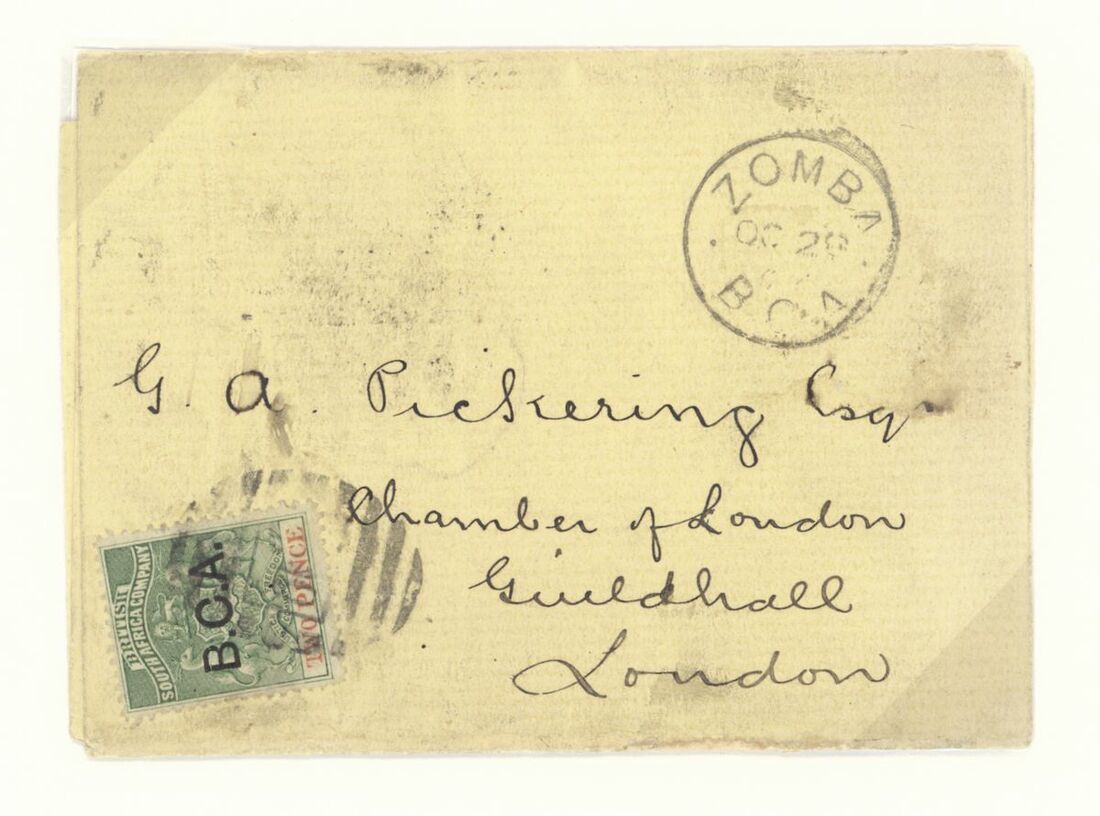 ZOMBA
OC 28
B.C.A
G. A. Pickering Esqr
Chamber of London
Guildhall
London
BRITISH
SOUTH AFRICA COMPANY
B.C.A.
TWO PENCE